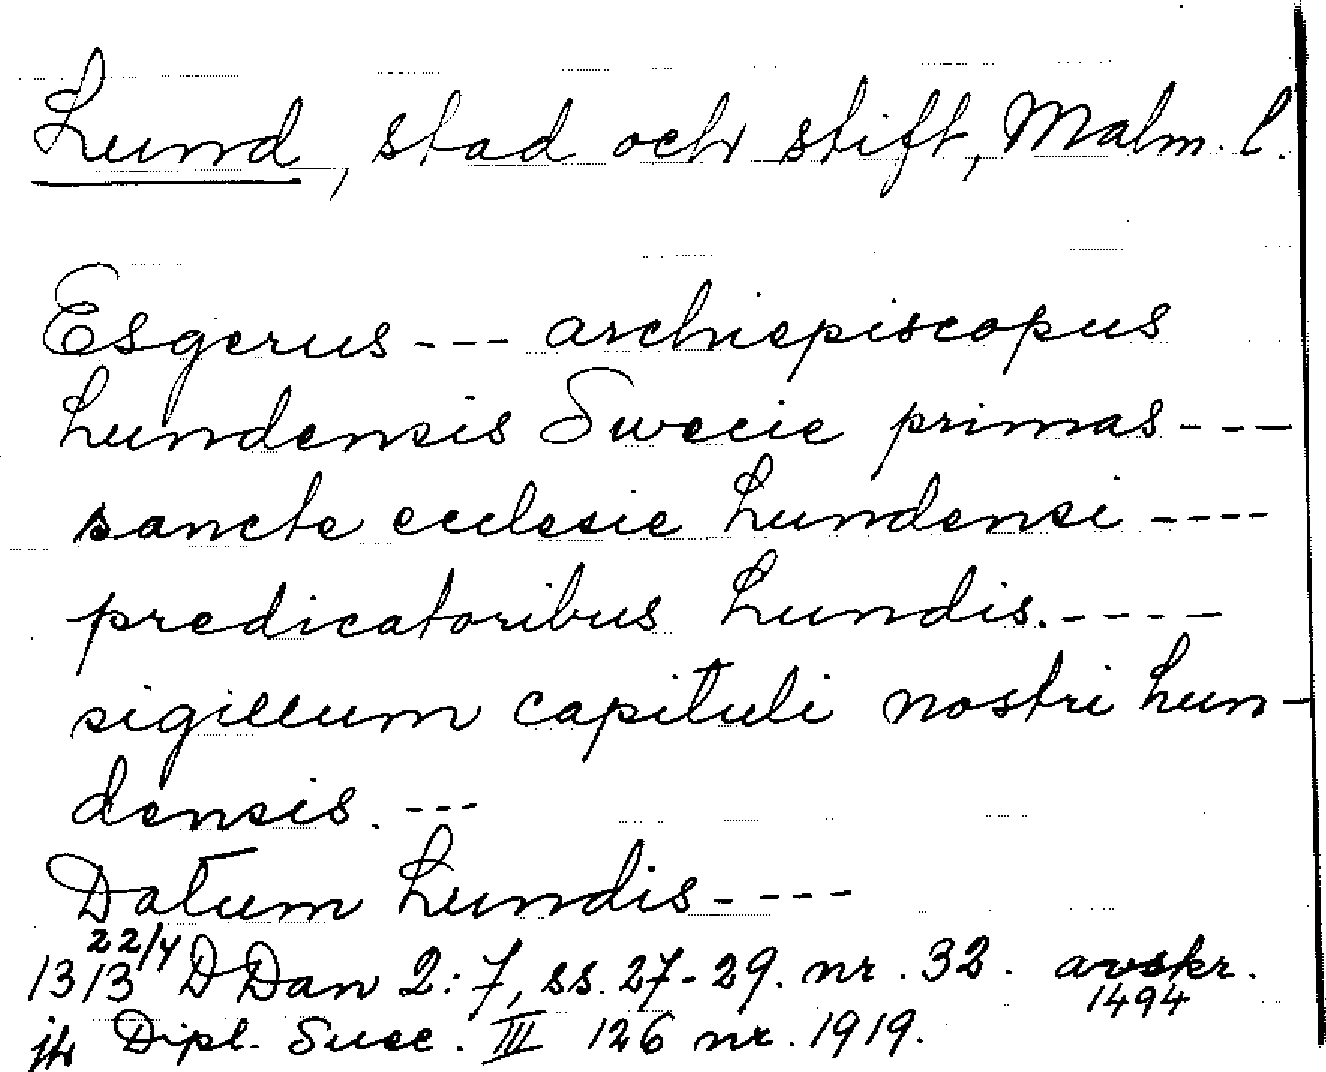 Lund, stad och stift, Malm. l.
Esgerus --- archiepiscopus
Lundensis Swecie primas ---
sancte ecclesie Lundensi ----
predicatoribus Lundis. ----
sigillum capituli nostri Lun-
densis. ---
Datum Lundis ----
1313 22/4 DDan 2:7, ss. 27-29. nr. 32. avskr. 1494
jfr Dipl. Suec. III 126 nr. 1919.